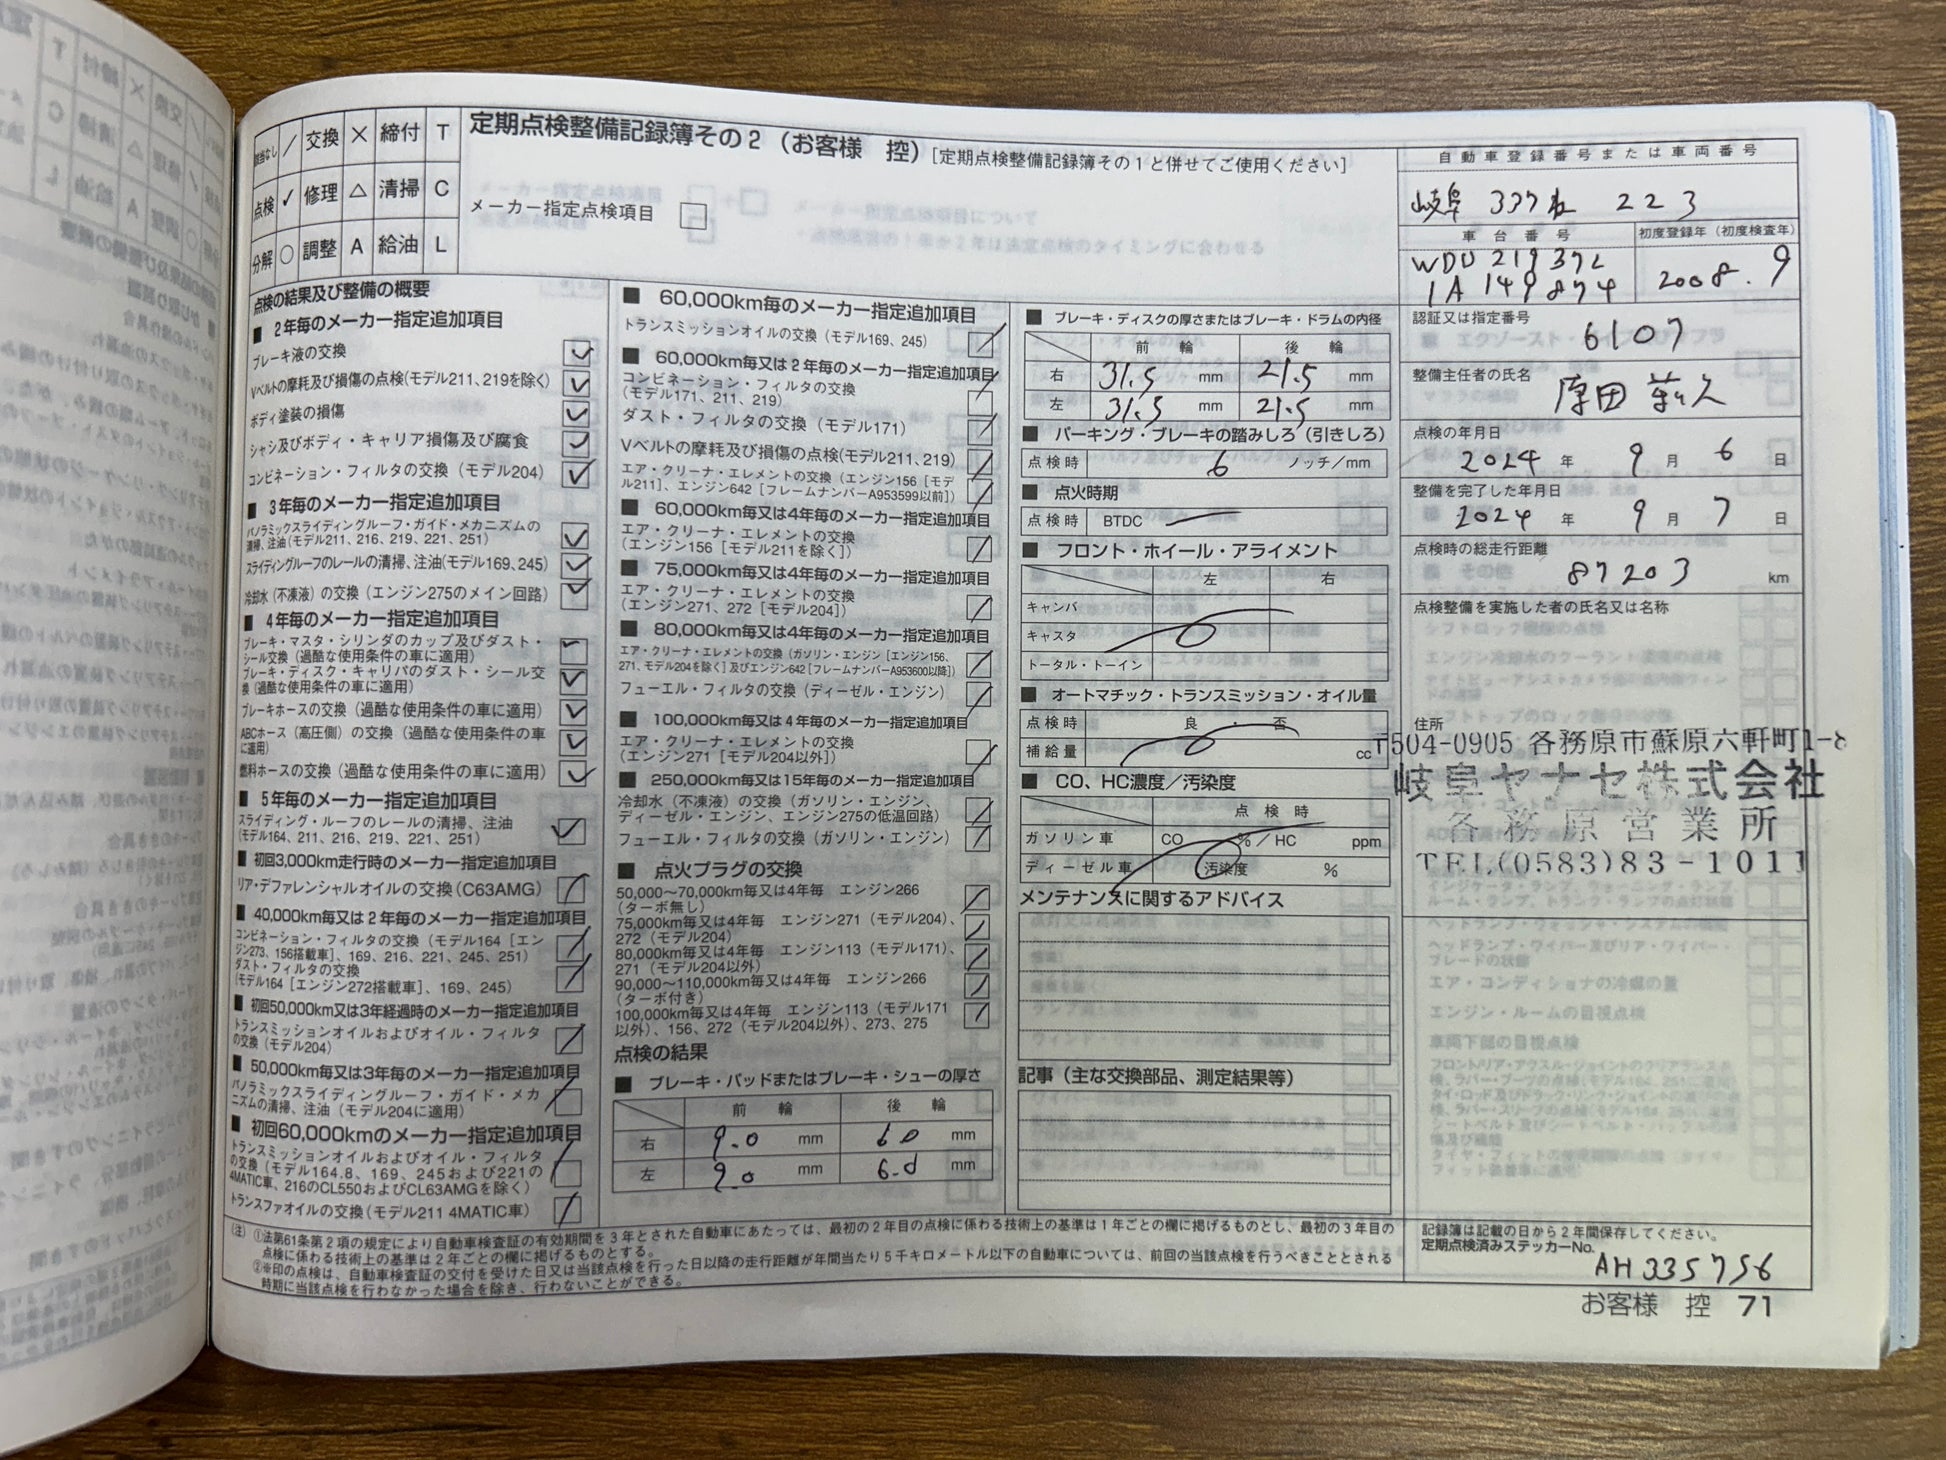 該当なし / 交換 × 締付 T
点検 ✓ 修理 △ 清掃 C
分解 ○ 調整 A 給油 L
定期点検整備記録簿その2（お客様 控）[定期点検整備記録簿その1と併せてご使用ください]
メーカー指定点検項目 □
点検の結果及び整備の概要
■ 2年毎のメーカー指定追加項目
ブレーキ液の交換
Vベルトの摩耗及び損傷の点検(モデル211、219を除く)
ボディ塗装の損傷
シャシ及びボディ・キャリア損傷及び腐食
コンビネーション・フィルタの交換（モデル204）
■ 3年毎のメーカー指定追加項目
パノラミックスライディングルーフ・ガイド・メカニズムの
清掃、注油(モデル211、216、219、221、251)
スライディングルーフのレールの清掃、注油(モデル169、245)
冷却水（不凍液）の交換（エンジン275のメイン回路）
■ 4年毎のメーカー指定追加項目
ブレーキ・マスタ・シリンダのカップ及びダスト・
シール交換（過酷な使用条件の車に適用）
ブレーキ・ディスク・キャリパのダスト・シール交
換（過酷な使用条件の車に適用）
ブレーキホースの交換（過酷な使用条件の車に適用）
ABCホース（高圧側）の交換（過酷な使用条件の車
に適用）
燃料ホースの交換（過酷な使用条件の車に適用）
■ 5年毎のメーカー指定追加項目
スライディング・ルーフのレールの清掃、注油
(モデル164、211、216、219、221、251)
■ 初回3,000km走行時のメーカー指定追加項目
リア・デファレンシャルオイルの交換(C63AMG)
■ 40,000km毎又は2年毎のメーカー指定追加項目
コンビネーション・フィルタの交換（モデル164［エン
ジン273、156搭載車］、169、216、221、245、251）
ダスト・フィルタの交換
（モデル164［エンジン272搭載車］、169、245）
■ 初回50,000km又は3年経過時のメーカー指定追加項目
トランスミッションオイルおよびオイル・フィルタ
の交換（モデル204）
■ 50,000km毎又は3年毎のメーカー指定追加項目
パノラミックスライディングルーフ・ガイド・メカ
ニズムの清掃、注油（モデル204に適用）
■ 初回60,000kmのメーカー指定追加項目
トランスミッションオイルおよびオイル・フィルタ
の交換（モデル164.8、169、245および221の
4MATIC車、216のCL550およびCL63AMGを除く）
トランスファオイルの交換（モデル211 4MATIC車）
■ 60,000km毎のメーカー指定追加項目
トランスミッションオイルの交換（モデル169、245）
■ 60,000km毎又は2年毎のメーカー指定追加項目
コンビネーション・フィルタの交換
（モデル171、211、219）
ダスト・フィルタの交換（モデル171）
Vベルトの摩耗及び損傷の点検(モデル211、219)
エア・クリーナ・エレメントの交換（エンジン156［モデ
ル211］、エンジン642［フレームナンバーA953599以前］）
■ 60,000km毎又は4年毎のメーカー指定追加項目
エア・クリーナ・エレメントの交換
（エンジン156［モデル211を除く］）
■ 75,000km毎又は4年毎のメーカー指定追加項目
エア・クリーナ・エレメントの交換
（エンジン271、272［モデル204］）
■ 80,000km毎又は4年毎のメーカー指定追加項目
エア・クリーナ・エレメントの交換（ガソリン・エンジン［エンジン156、
271、モデル204を除く］及びエンジン642［フレームナンバーA953600以降］）
フューエル・フィルタの交換（ディーゼル・エンジン）
■ 100,000km毎又は4年毎のメーカー指定追加項目
エア・クリーナ・エレメントの交換
（エンジン271［モデル204以外］）
■ 250,000km毎又は15年毎のメーカー指定追加項目
冷却水（不凍液）の交換（ガソリン・エンジン、
ディーゼル・エンジン、エンジン275の低温回路）
フューエル・フィルタの交換（ガソリン・エンジン）
■ 点火プラグの交換
50,000〜70,000km毎又は4年毎 エンジン266
（ターボ無し）
75,000km毎又は4年毎 エンジン271（モデル204）、
272（モデル204）
80,000km毎又は4年毎 エンジン113（モデル171）、
271（モデル204以外）
90,000〜110,000km毎又は4年毎 エンジン266
（ターボ付き）
100,000km毎又は4年毎 エンジン113（モデル171
以外）、156、272（モデル204以外）、273、275
点検の結果
■ ブレーキ・パッドまたはブレーキ・シューの厚さ
前輪 後輪
右 9.0 mm 6.0 mm
左 9.0 mm 6.0 mm
■ ブレーキ・ディスクの厚さまたはブレーキ・ドラムの内径
前輪 後輪
右 31.5 mm 21.5 mm
左 31.5 mm 21.5 mm
■ パーキング・ブレーキの踏みしろ（引きしろ）
点検時 6 ノッチ/mm
■ 点火時期
点検時 BTDC
■ フロント・ホイール・アライメント
左 右
キャンバ
キャスタ
トータル・トーイン
■ オートマチック・トランスミッション・オイル量
点検時 良・否
補給量 cc
■ CO、HC濃度／汚染度
点検時
ガソリン車 CO %／HC ppm
ディーゼル車 汚染度 %
メンテナンスに関するアドバイス
記事（主な交換部品、測定結果等）
自動車登録番号または車両番号
岐阜 337 223
車台番号 初度登録年（初度検査年）
WDD 219 372
1A 149 874
2008.9
認証又は指定番号
6107
整備主任者の氏名
原田
点検の年月日
2024 年 9 月 6 日
整備を完了した年月日
2024 年 9 月 7 日
点検時の総走行距離
87203 km
点検整備を実施した者の氏名又は名称
住所
〒504-0905 各務原市蘇原六軒町1-8
岐阜ヤナセ株式会社
各務原営業所
TEL(0583)83-1011
記録簿は記載の日から2年間保存してください。
定期点検済みステッカーNo.
AH335756
（注）①法第61条第2項の規定により自動車検査証の有効期間を3年とされた自動車にあたっては、最初の2年目の点検に係わる技術上の基準は1年ごとの欄に掲げるものとし、最初の3年目の
点検に係わる技術上の基準は2年ごとの欄に掲げるものとする。
②※印の点検は、自動車検査証の交付を受けた日又は当該点検を行った日以降の走行距離が年間当たり5千キロメートル以下の自動車については、前回の当該点検を行うべきこととされる
時期に当該点検を行わなかった場合を除き、行わないことができる。
お客様 控 71